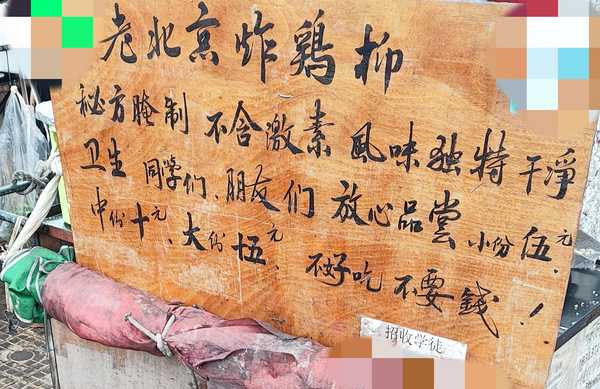 老北京炸鶏柳
秘方腌制 不含激素 風味独特 干淨
卫生 同学们、朋友们 放心品尝 小份伍元、
中份十元、大份十伍元、不好吃 不要錢！
招收学徒